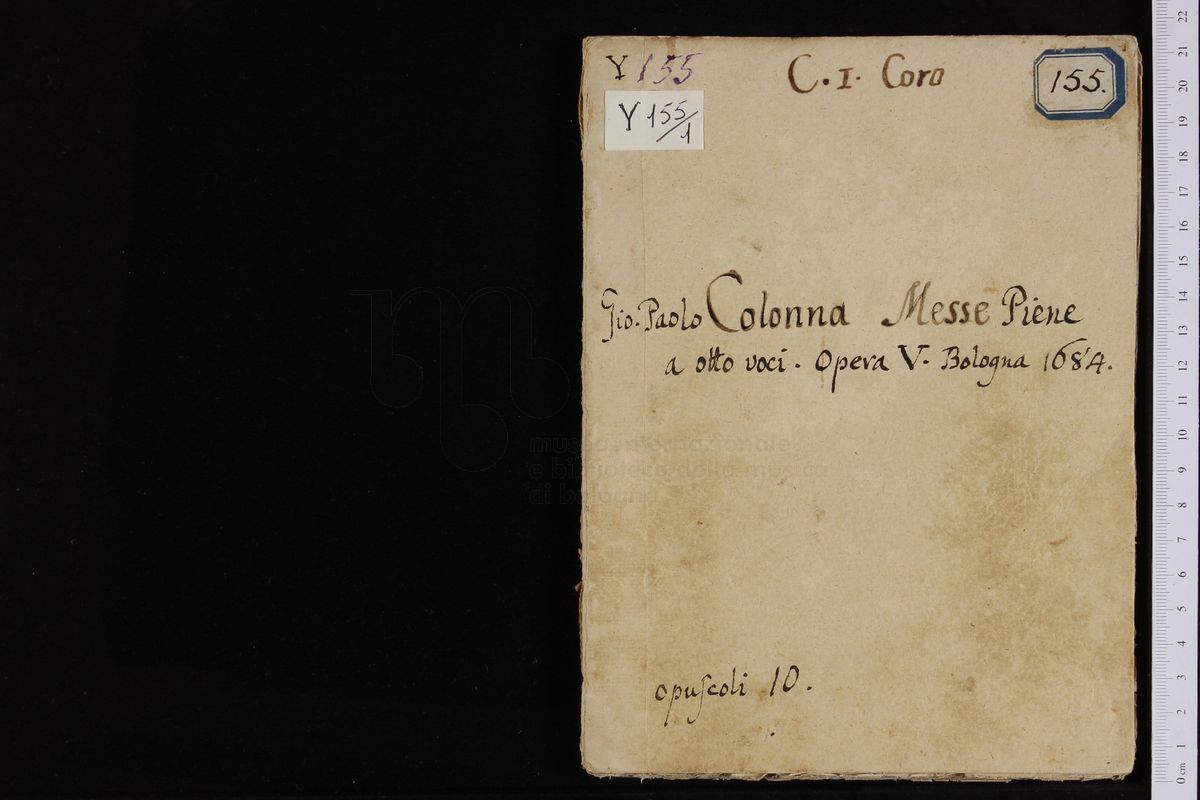 Y 155
C. 1. Coro
155.
Y 155/1
Gio. Paolo Colonna Messe Piene
a otto voci. Opera V. Bologna 1684.
museo internazionale
e biblioteca della musica
di bologna
opuſcoli 10.
22
21
20
19
18
17
16
15
14
13
12
11
10
9
8
7
6
5
4
3
2
1
0 cm